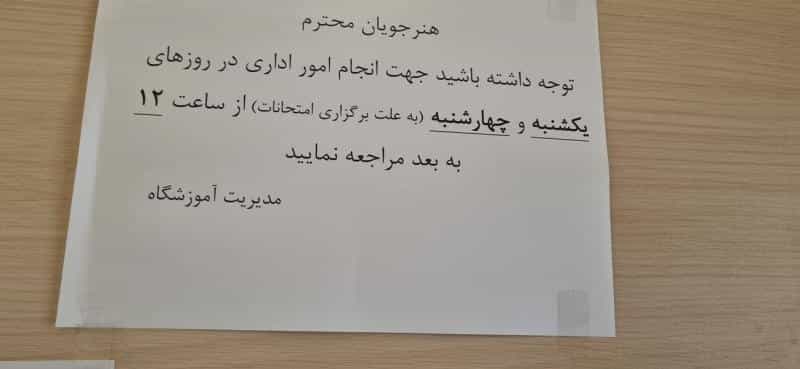 هنرجویان محترم
توجه داشته باشید جهت انجام امور اداری در روزهای
یکشنبه و چهارشنبه (به علت برگزاری امتحانات) از ساعت ۱۲
به بعد مراجعه نمایید
مدیریت آموزشگاه